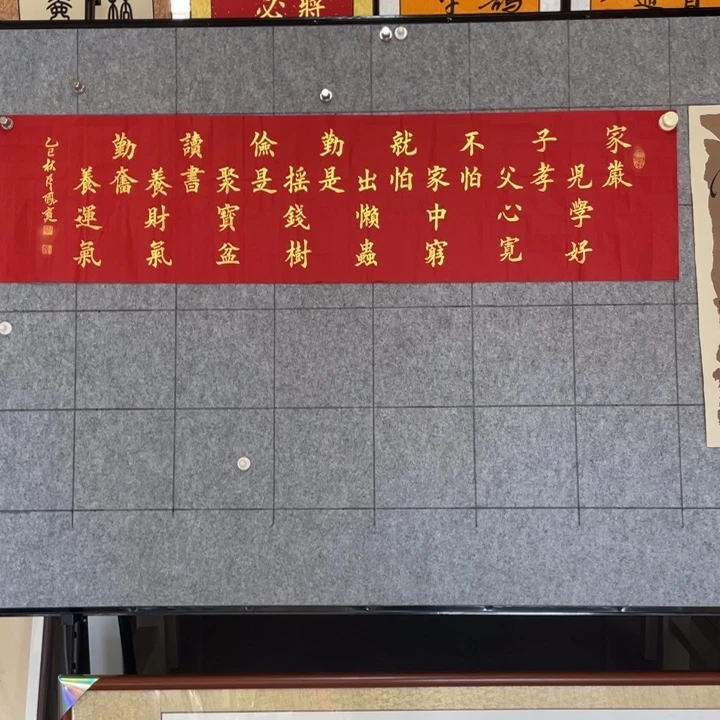 家嚴
児學好
子孝
父心寬
不怕
家中窮
就怕
出懶蟲
勤是
搖錢樹
儉是
聚寶盆
讀書
養財氣
勤奮
養運氣
乙巳秋
必將